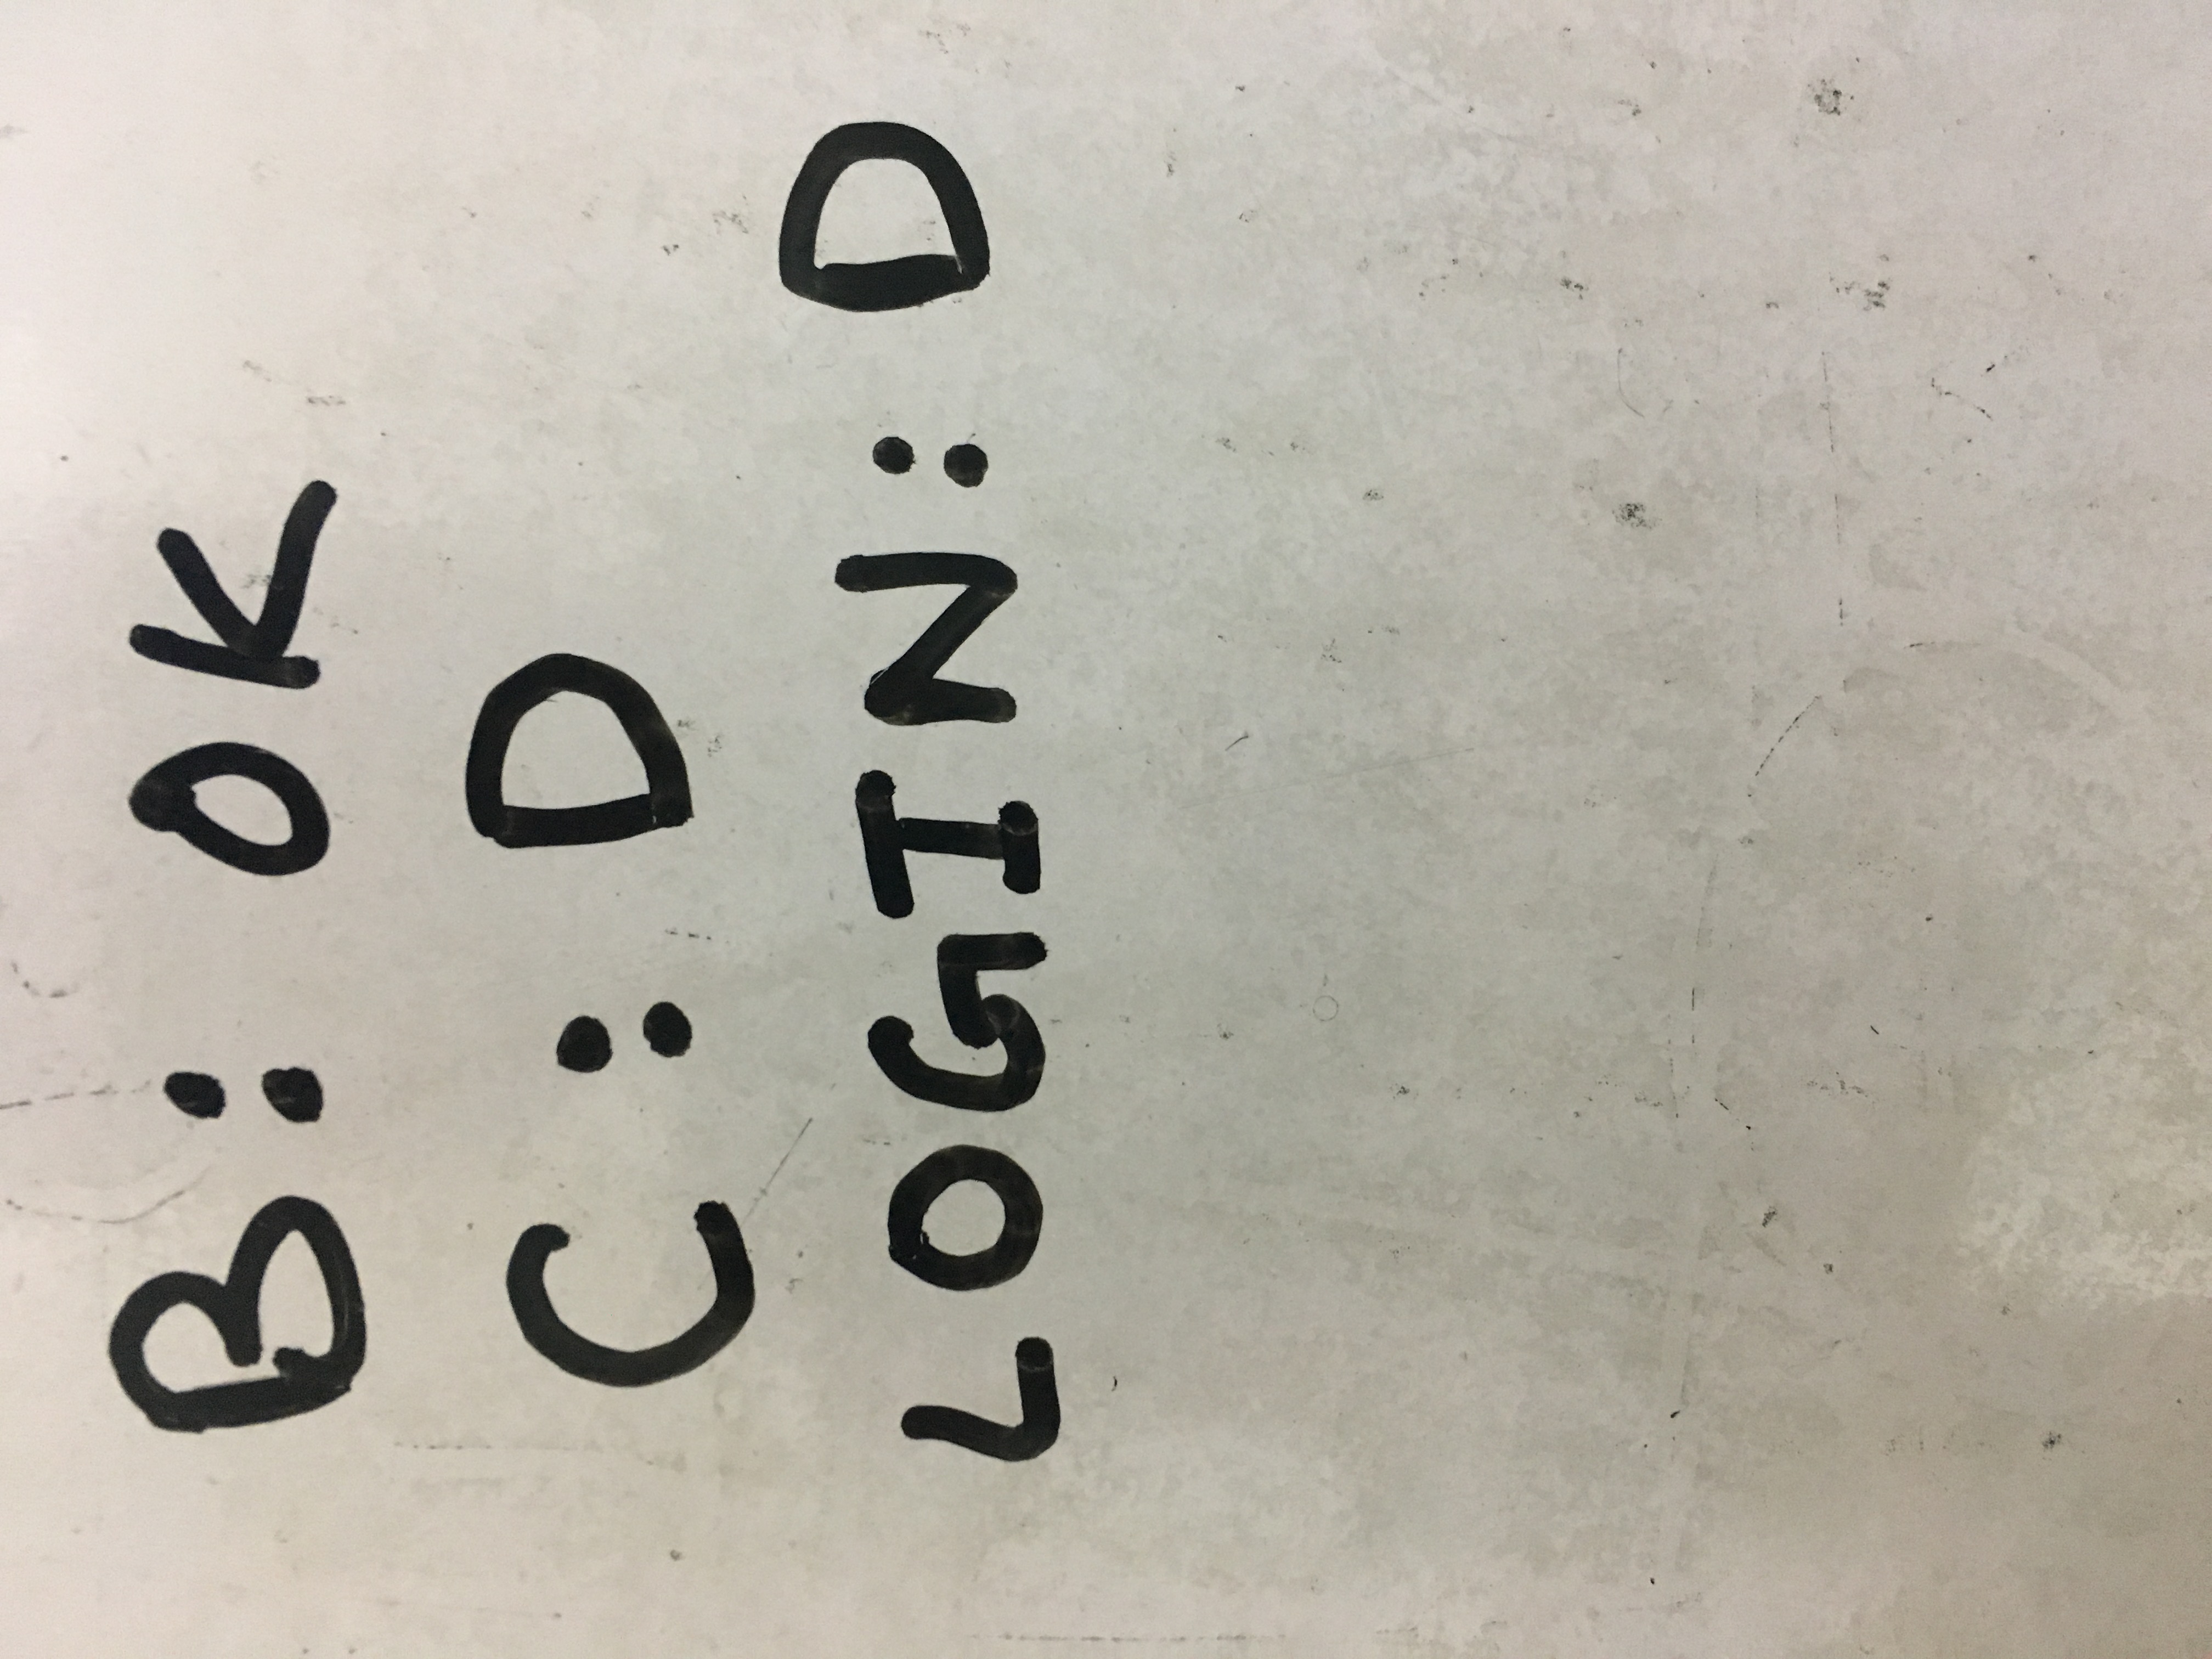 B: OK
C: D
LOGIN: D